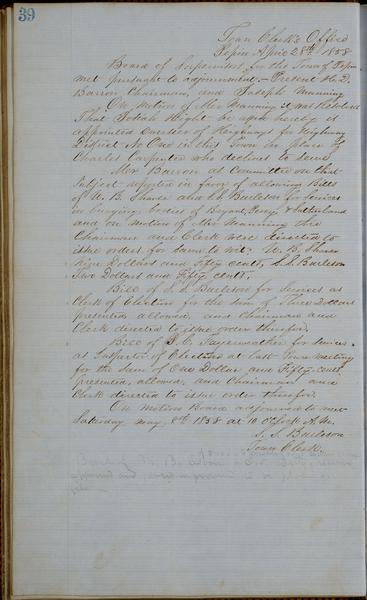 39
Town Clerk's Office
Pepin April 28th 1858
Board of Supervisors for the Town of Pepin
met pursuant to adjournment, - Present H. D.
Barron, Chairman, and Joseph Manning
On Motion of Mr Manning it was Resolved
That Josiah Hight be and hereby is
appointed Overseer of Highways for Highway
District No One in this Town in place of
Charles Carpenter who declines to serve
Mr Barron as Committee on that
subject reported in favor of allowing Bills
of U. B. Shaver and S. S. Burleson for Services
in burying bodies of Bryant, & Sutherland
and on Motion of Mr Manning the
Chairman and Clerk were directed to
issue orders for same to wit, U. B. Shaver
Dollars and Fifty cents, S. S. Burleson
Two Dollars and Fifty cents,
Bill of S. S. Burleson for services as
Clerk of Election for the sum of Three Dollars
presented allowed, and Chairman and
Clerk directed to issue order therefor.
Bill of S. C. Fayerweather for services
as Inspector of Elections at last Town meeting
for the sum of One Dollar and Fifty cents
presented, allowed, and Chairman and
Clerk directed to issue order therefor.
On Motion Board adjourned to meet
Saturday May 8th 1858 at 10 O'Clock A.M.
S. S. Burleson
Town Clerk.